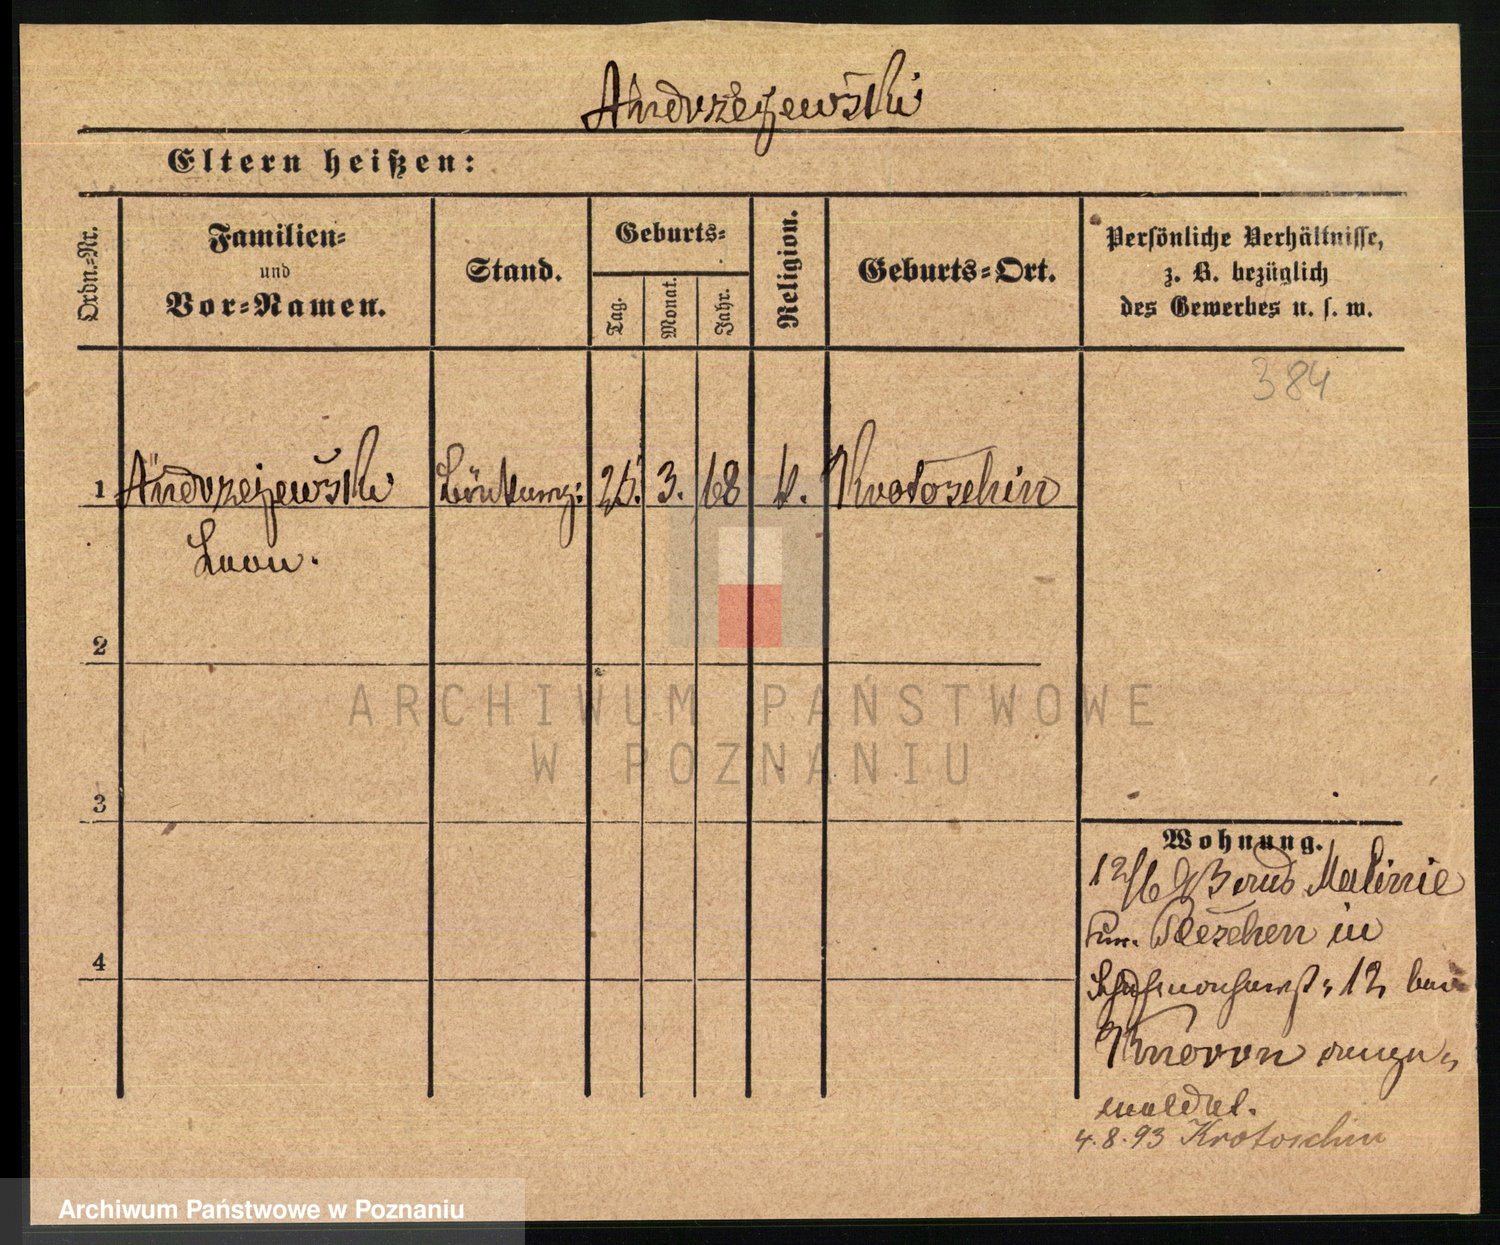 Andrzejewski
Eltern heißen:
Ordn.-Nr.
Familien-
und
Vor-Namen.
Stand.
Geburts-
Tag.
Monat.
Jahr.
Religion.
Geburts-Ort.
Persönliche Verhältnisse,
z. B. bezüglich
des Gewerbes u. s. w.
384
1 Andrzejewski 25. 3. 68 k. Krotoschin
Leon.
2
3
4
Wohnung.
12/6 93 Malinie
Pleschen in
12 bei
Knorrn ange-
meldet.
4.8.93 Krotoschin
ARCHIWUM PAŃSTWOWE
W POZNANIU
Archiwum Państwowe w Poznaniu